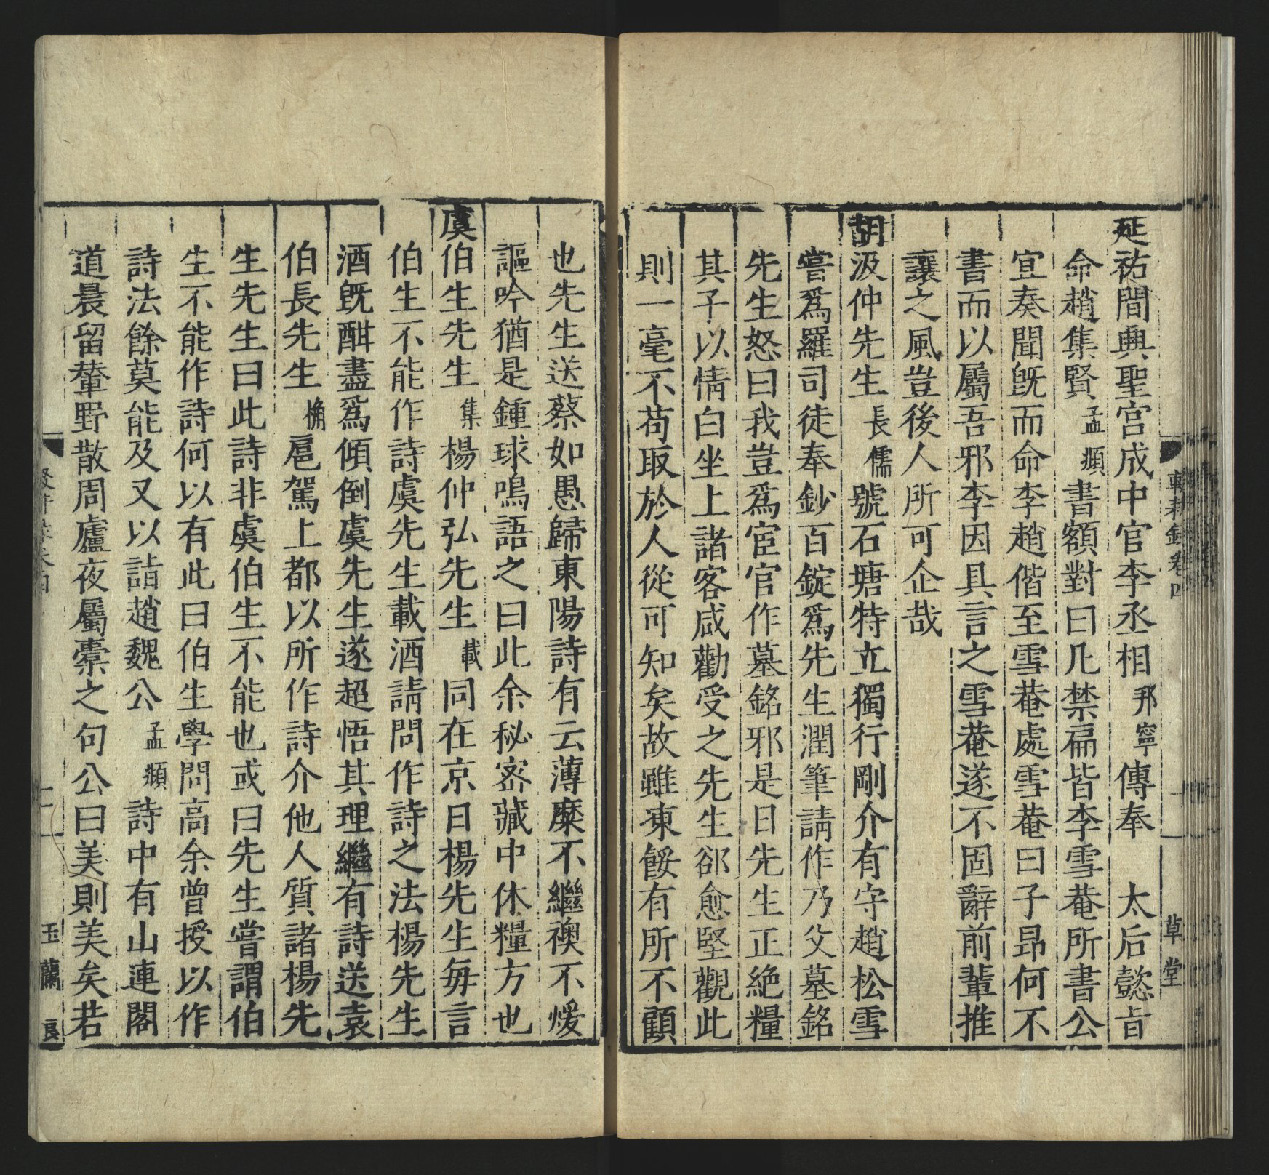 延祐間興聖宮成中官李丞相邦寧傳奉　太后懿旨
命趙集賢孟頫書額對曰凡禁扁皆李雪菴所書公
宜奏聞旣而命李趙偕至雪菴處雪菴曰子昂何不
書而以屬吾邪李因具言之雪菴遂不固辭前輩推
讓之風豈後人所可企哉
胡汲仲先生長儒號石塘特立獨行剛介有守趙松雪
嘗爲羅司徒奉鈔百錠爲先生潤筆請作乃父墓銘
先生怒曰我豈爲宦官作墓銘邪是日先生正絶糧
其子以情白坐上諸客咸勸受之先生郤愈堅觀此
則一毫不苟取於人從可知矣故雖凍餒有所不顧
也先生送蔡如愚歸東陽詩有云薄糜不繼襖不煖
謳吟猶是鍾球鳴語之曰此余秘密藏中休糧方也
虞伯生先生集楊仲弘先生載同在京日楊先生毎言
伯生不能作詩虞先生載酒請問作詩之法楊先生
酒旣酣盡爲傾倒虞先生遂超悟其理繼有詩送袁
伯長先生桷扈駕上都以所作詩介他人質諸楊先
生先生曰此詩非虞伯生不能也或曰先生嘗謂伯
生不能作詩何以有此曰伯生學問高余曾授以作
詩法餘莫能及又以詣趙魏公孟頫詩中有山連閣
道晨留輦野散周廬夜屬橐之句公曰美則美矣若
輟耕錄卷四
草堂
玉蘭